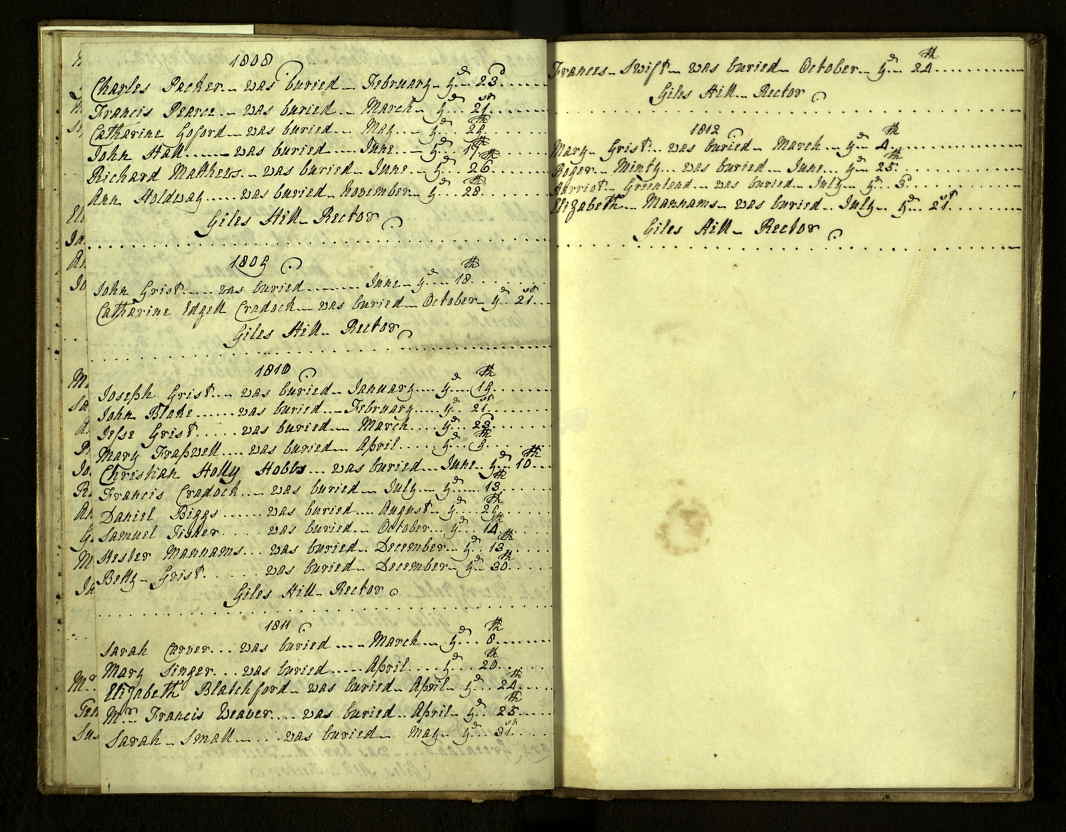 1808
Charles Packer was buried February yᵉ 23ᵈ
Francis Pearce was buried March yᵉ 21ˢᵗ
Catharine Goford was buried May yᵉ 22
John Hall was buried June yᵉ 19ᵗʰ
Richard Mathews was buried June yᵉ 26ᵗʰ
Ann Holdway was buried November yᵉ 28ᵗʰ
Giles Hill Rector
1809
John Grist was buried June yᵉ 18ᵗʰ
Catharine Edgell Cradock was buried October yᵉ 21ˢᵗ
Giles Hill Rector
1810
Joseph Grist was buried January yᵉ 19ᵗʰ
John Blake was buried February yᵉ 21ˢᵗ
Jesse Grist was buried March yᵉ 23ᵈ
Mary Frapwell was buried April yᵉ 9ᵗʰ
Christian Holly Hobbs was buried June yᵉ 10ᵗʰ
Francis Cradock was buried July yᵉ 13ᵗʰ
Daniel Biggs was buried August yᵉ
Samuel Fisher was buried October yᵉ 14ᵗʰ
Hester Mannams was buried December yᵉ 13ᵗʰ
Betty Grist was buried December yᵉ 30ᵗʰ
Giles Hill Rector
1811
Sarah Carver was buried March yᵉ 8ᵗʰ
Mary Singer was buried April yᵉ 20ᵗʰ
Elizabeth Blatchford was buried April yᵉ 24ᵗʰ
Mʳ Francis Weaver was buried April yᵉ 25ᵗʰ
Sarah Small was buried May yᵉ 31ˢᵗ
Frances Swift was buried October yᵉ 24ᵗʰ
Giles Hill Rector
1812
Mary Grist was buried March yᵉ 4ᵗʰ
Roger Minty was buried June yᵉ 25ᵗʰ
Harriot Greenland was buried July yᵉ 3ᵈ
Elizabeth Mannams was buried July yᵉ 21ˢᵗ
Giles Hill Rector